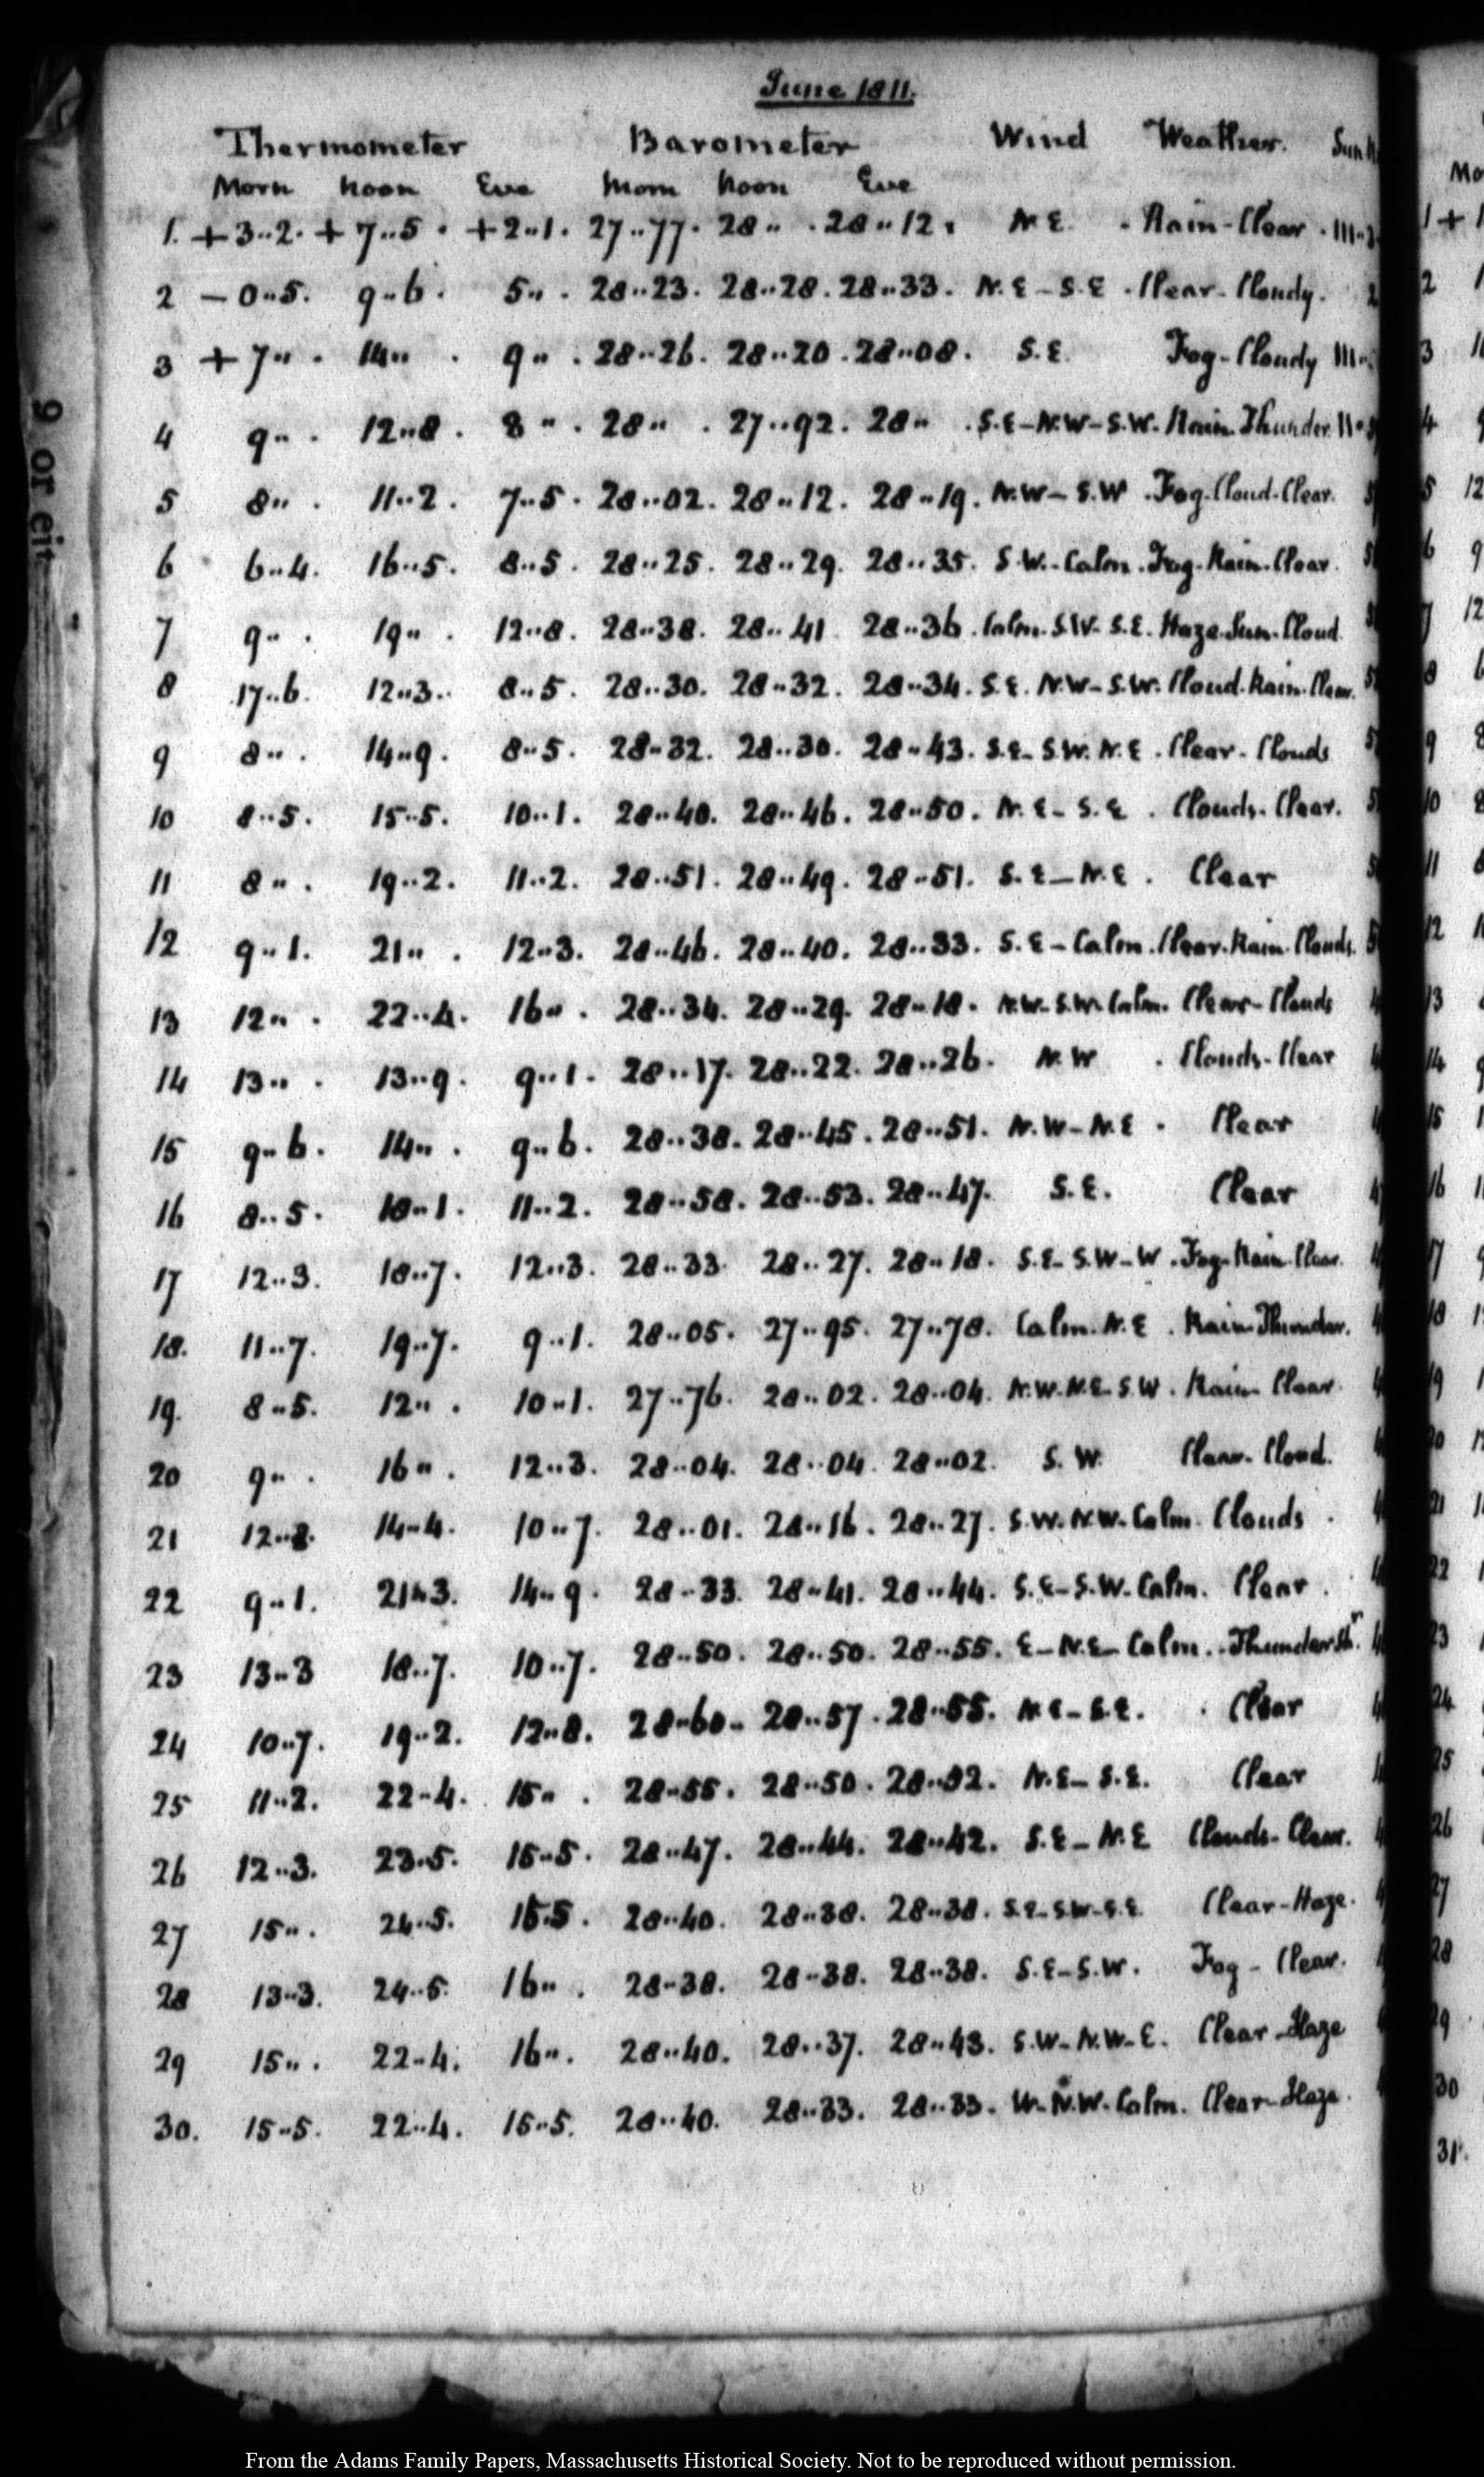 June 1811.
Thermometer Barometer Wind Weather. Sun
Morn Noon Eve Morn Noon Eve
1. +3..2. +7..5. +2..1. 27..77. 28.. . 28..12. N.E. . Rain-Clear. III..
2 -0..5. 9..6. 5.. . 28..23. 28..28. 28..33. N.E-S.E. Clear-Cloudy.
3 +7.. . 14.. . 9.. . 28..26. 28..20. 28..08. S.E. Fog-Cloudy III..
4 9.. . 12..8. 8.. . 28.. . 27..92. 28.. . S.E-N.W-S.W. Rain. Thunder. II..
5 8.. . 11..2. 7..5. 28..02. 28..12. 28..19. N.W-S.W. Fog-Cloud-Clear.
6 6..4. 16..5. 8..5. 28..25. 28..29. 28..35. S.W.-Calm. Fog-Rain-Clear.
7 9.. . 19.. . 12..8. 28..38. 28..41 28..36. Calm. S.W. S.E. Haze.Sun.Cloud
8 17..6. 12..3. 8..5. 28..30. 28..32. 28..34. S.E. N.W-S.W. Cloud.Rain.Clear.
9 8.. . 14..9. 8..5. 28..32. 28..30. 28..43. S.E-S.W. N.E. Clear-Clouds
10 8..5. 15..5. 10..1. 28..40. 28..46. 28..50. N.E-S.E. Clouds-Clear.
11 8.. . 19..2. 11..2. 28..51. 28..49. 28..51. S.E-N.E. Clear
12 9..1. 21.. . 12..3. 28..46. 28..40. 28..33. S.E-Calm. Clear.Rain.Clouds.
13 12.. . 22..4. 16.. . 28..34. 28..29. 28..18. N.W-S.W-Calm. Clear-Clouds
14 13.. . 13..9. 9..1. 28..17. 28..22. 28..26. N.W. Clouds-Clear
15 9..6. 14.. . 9..6. 28..38. 28..45. 28..51. N.W-N.E. Clear
16 8..5. 18..1. 11..2. 28..58. 28..53. 28..47. S.E. Clear
17 12..3. 18..7. 12..3. 28..33. 28..27. 28..18. S.E-S.W-W. Fog-Rain-Clear.
18. 11..7. 19..7. 9..1. 28..05. 27..95. 27..78. Calm-N.E. Rain-Thunder.
19. 8..5. 12.. . 10..1. 27..76. 28..02. 28..04. N.W.N.E.S.W. Rain-Clear.
20 9.. . 16.. . 12..3. 28..04. 28..04. 28..02. S.W. Clear-Cloud.
21 12..8. 14..4. 10..7. 28..01. 28..16. 28..27. S.W.N.W.Calm. Clouds.
22 9..1. 21..3. 14..9. 28..33. 28..41. 28..44. S.E-S.W.Calm. Clear.
23 13..3 18..7. 10..7. 28..50. 28..50. 28..55. E-N.E-Calm. Thunder Shr.
24 10..7. 19..2. 12..8. 28..60. 28..57. 28..55. N.E-S.E. Clear
25 11..2. 22..4. 15.. . 28..55. 28..50. N.E-S.E. Clear
26 12..3. 23..5. 15..5. 28..47. 28..44. 28..42. S.E-N.E Clouds-Clear.
27 15.. . 24..5. 15.5. 28..40. 28..38. 28..38. S.E-S.W-S.E. Clear-Haze.
28 13..3. 24..5. 16.. . 28..38. 28..38. 28..38. S.E-S.W. Fog-Clear.
29 15.. . 22..4. 16.. . 28..40. 28..37. 28..43. S.W-N.W-E. Clear-Haze
30. 15..5. 22..4. 15..5. 28..40. 28..33. 28..33. W-N.W.Calm. Clear-Haze.
9 or eit
From the Adams Family Papers, Massachusetts Historical Society. Not to be reproduced without permission.